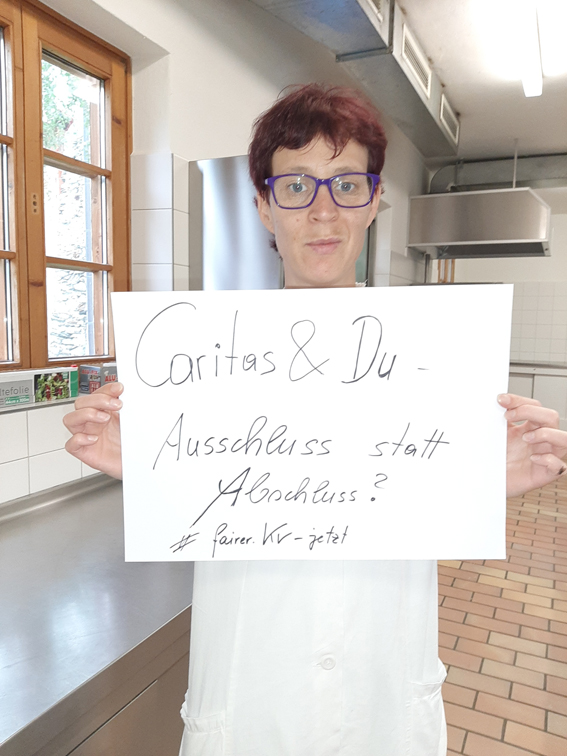 Caritas & Du -
Ausschluss statt
Abschluss?
# fairer.KV-jetzt